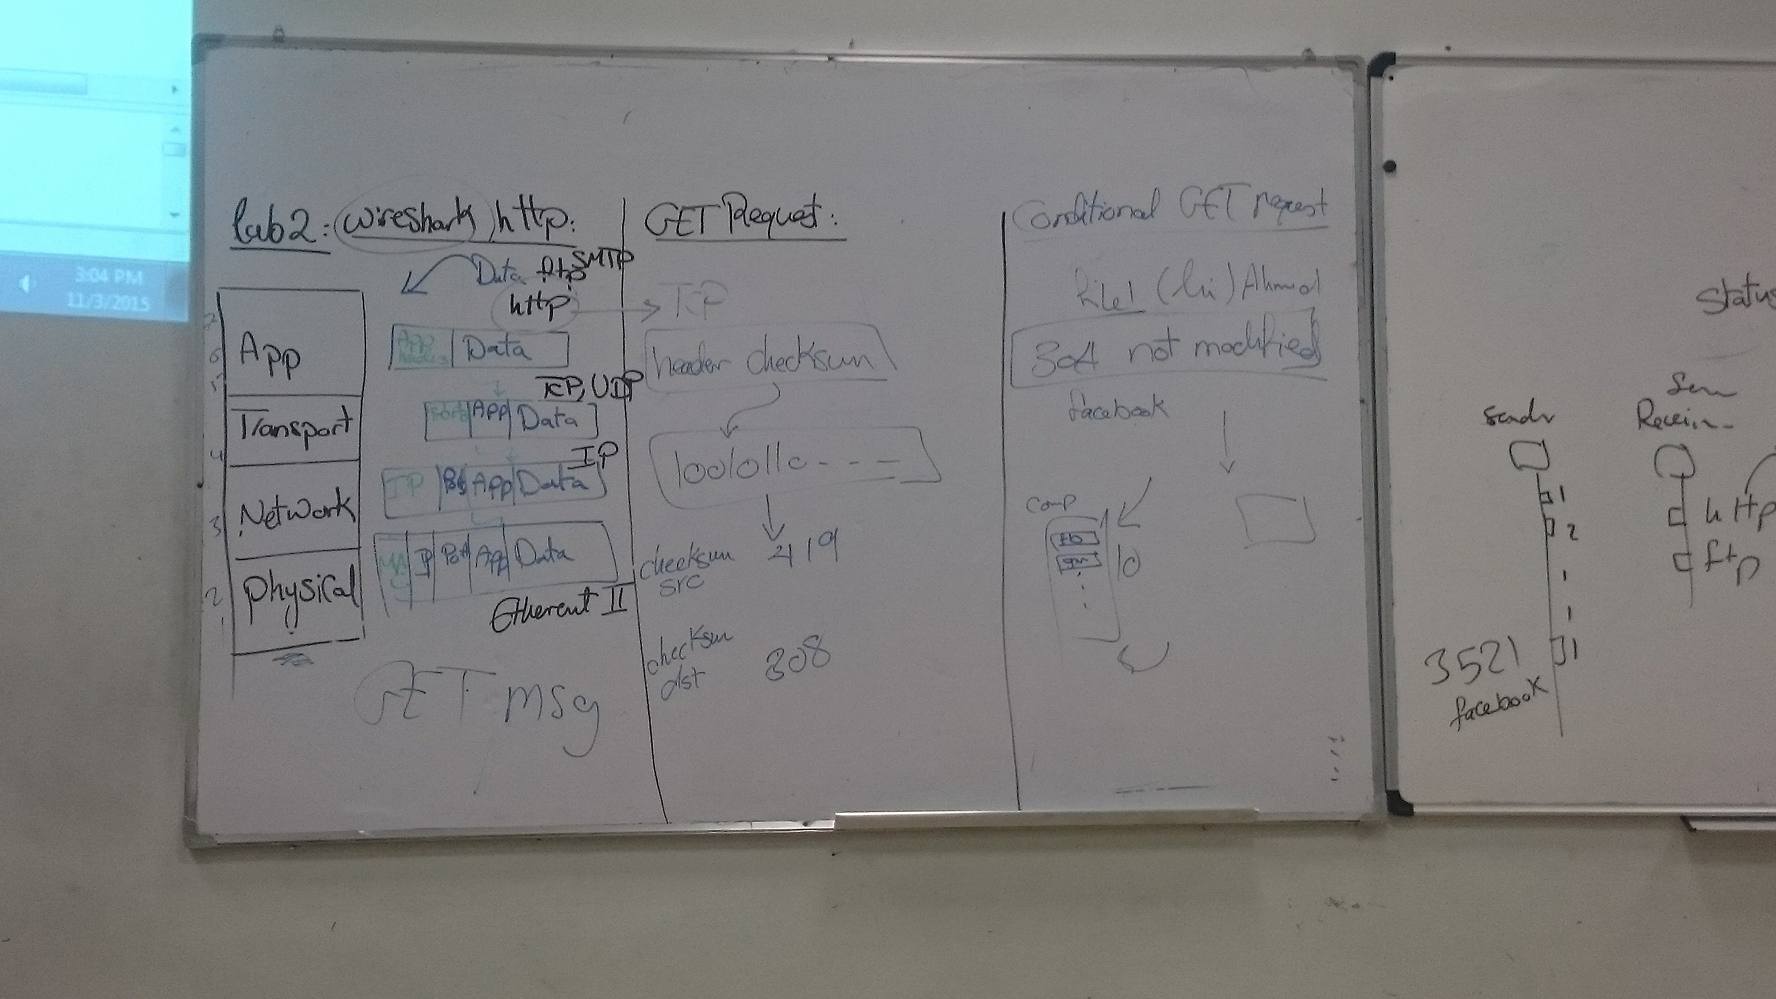 3:04 PM
11/3/2015
lab2: wireshark http:
Data ftp SMTP
http
7
6
5
4
3
2
1
App
Transport
Network
Physical
App Data
TCP, UDP
Port App Data
IP
IP Port App Data
IP Port App Data
Etherent II
GET msg
GET Request:
TCP
header checksum
checksum
src
419
checksum
dst
308
Conditional GET request
File1 (hi) Ahmad
304 not modified
facebook
comp
fb
10
Status
Receiv
1
2
http
ftp
3521
facebook